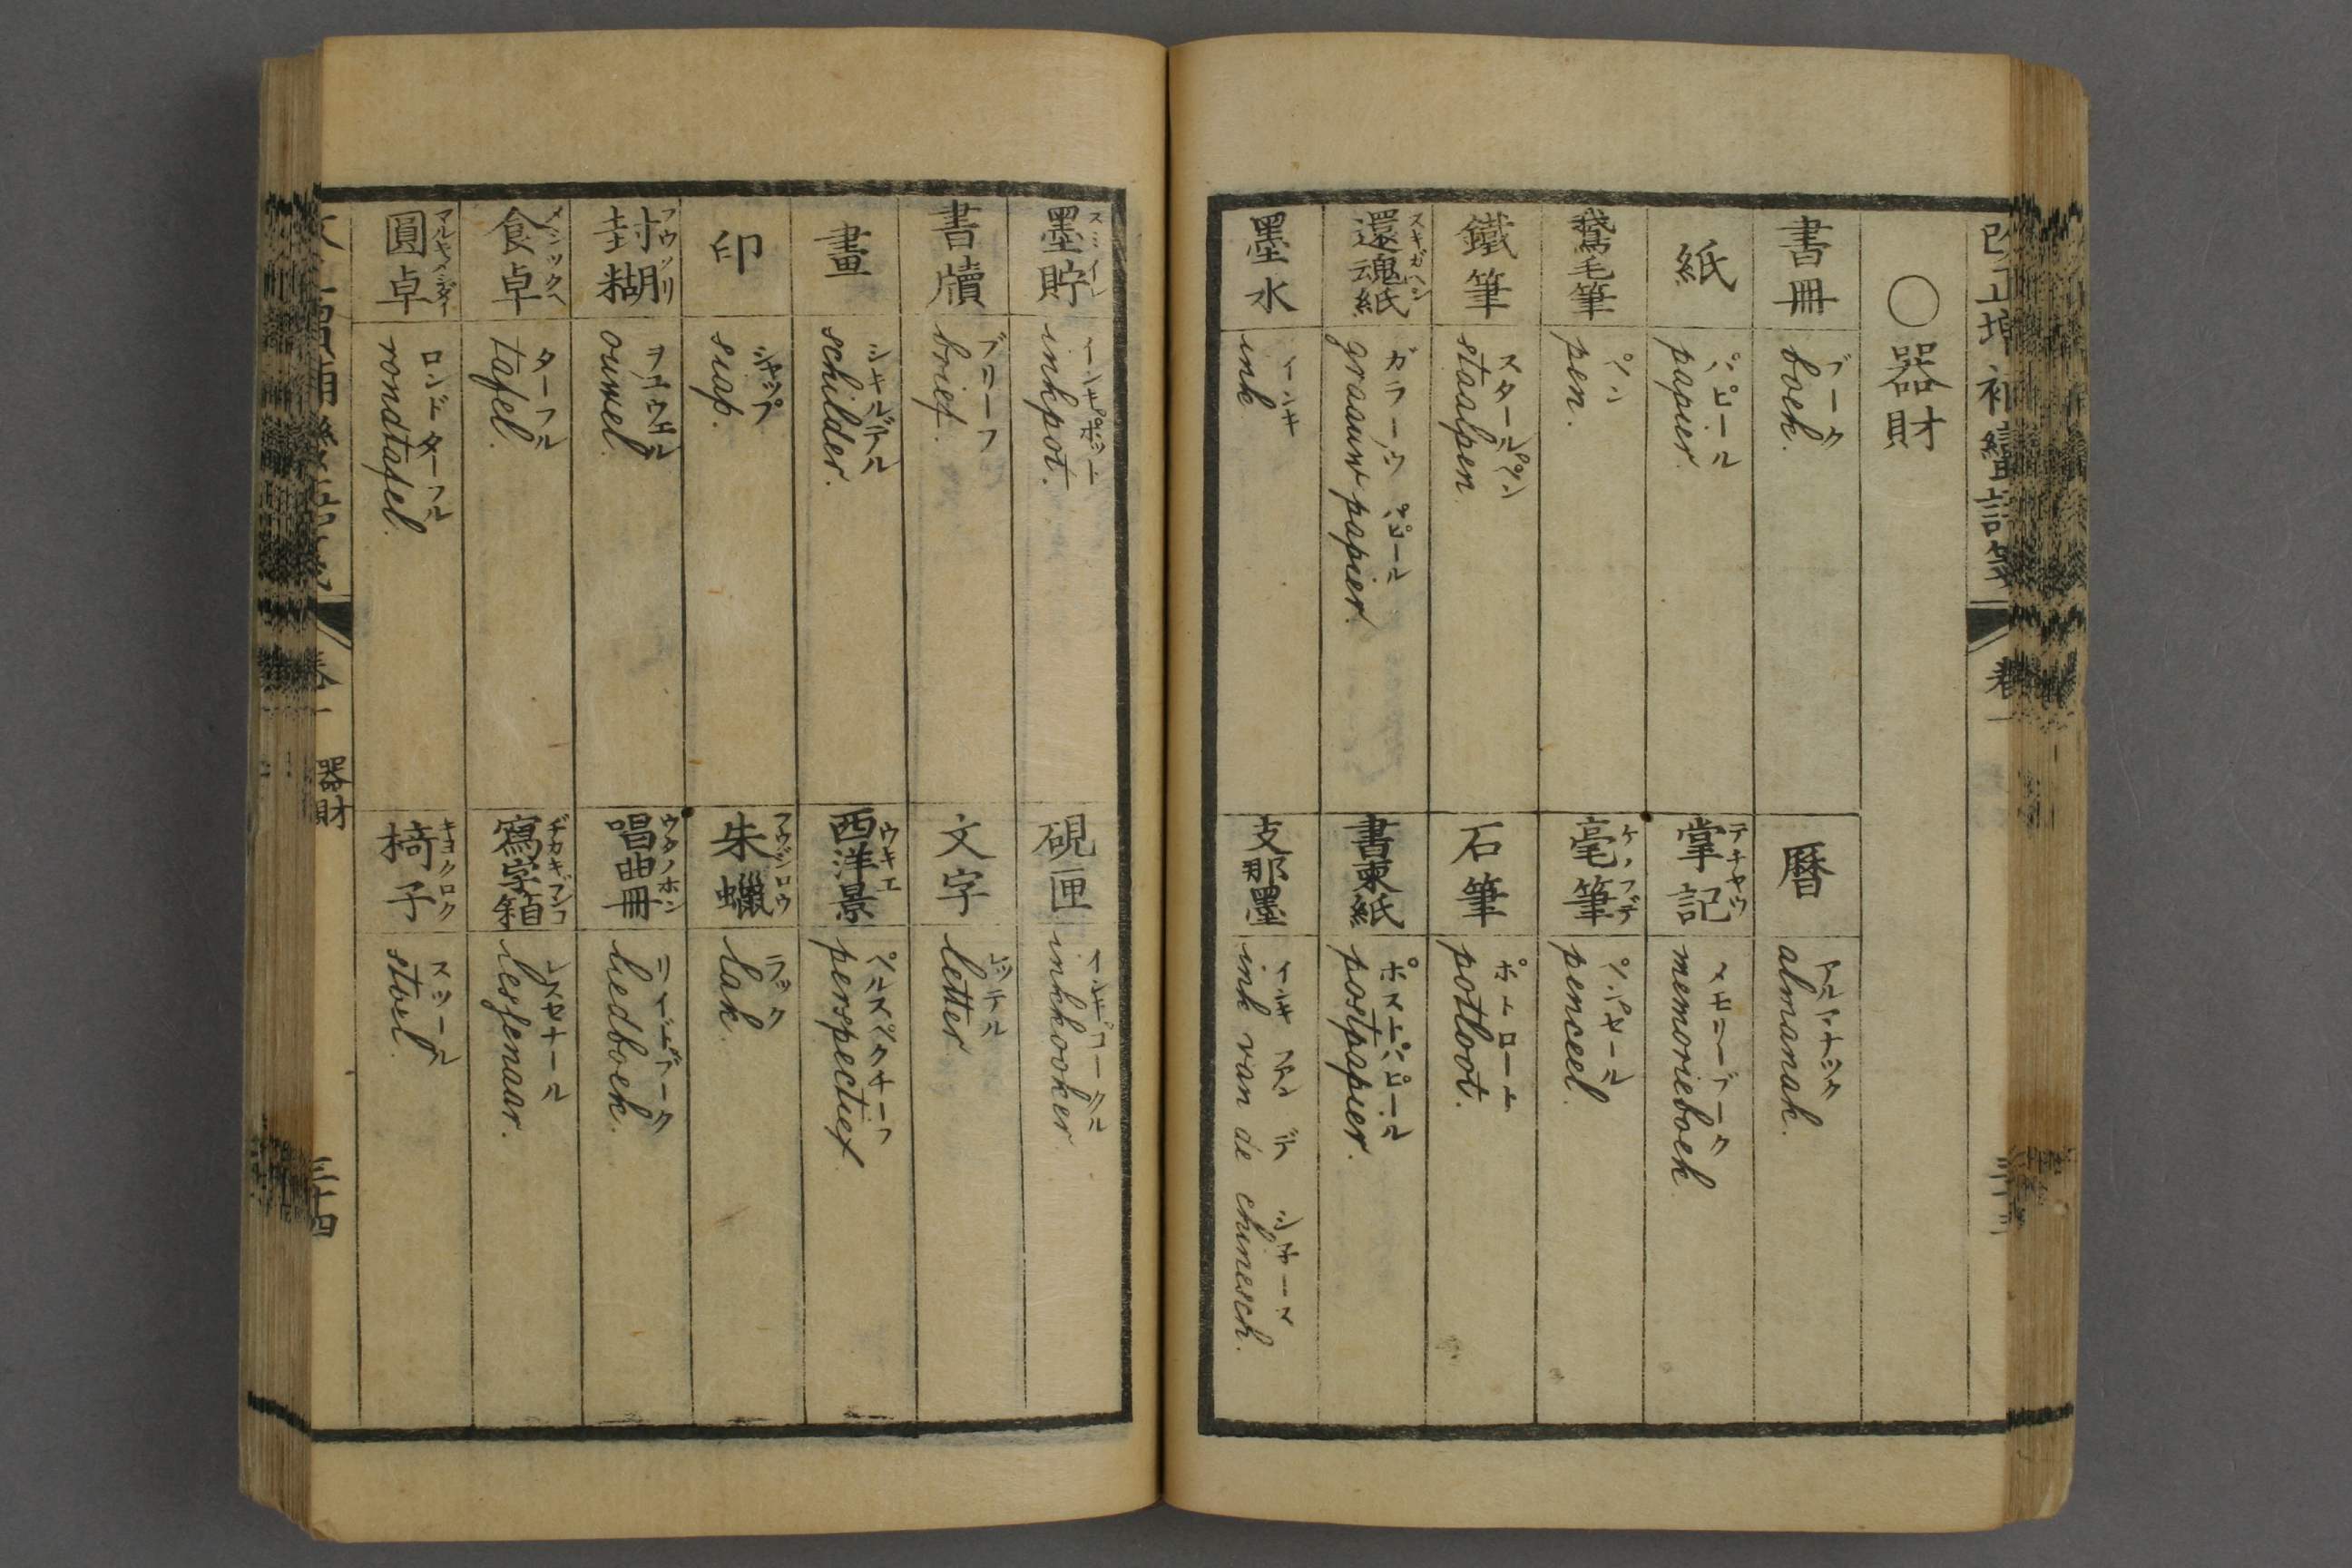 ○器財
書冊
ブーク
boek.
暦
アルマナック
almanak.
紙
パピール
papier.
掌記
テチヤウ
メモリーブーク
memorieboek
鵞毛筆
ペン
pen.
毫筆
ケノフデ
ペンセール
penceel.
鐵筆
スタールペン
staalpen.
石筆
ポトロート
potloot.
還魂紙
スキガヘシ
ガラーウパピール
graauw papier.
書柬紙
ポストパピール
postpapier.
墨水
インキ
ink
支那墨
インキ ファン デ シネース
ink van de chinesch.
墨貯
スミイレ
インキポット
inkpot.
硯匣
インキコークル
inkkooker
書牘
ブリーフ
brief.
文字
レッテル
letter
畫
シキルデル
schilder.
西洋景
ウキエ
ペルスペクチーフ
perspectief
印
シャップ
siap.
朱蠟
フウジロウ
ラック
lak.
封糊
フウノリ
ヲユウエル
ouwel.
唱曲冊
ウタノホン
リードブーク
liedboek.
食卓
メシツクヘ
ターフル
tafel.
寫字箱
ヂカキブンコ
レスセナール
lessenaar.
圓卓
マルキメシダイ
ロンドターフル
rondtafel.
椅子
キヨクロク
スツール
stoel.
器財
三十四